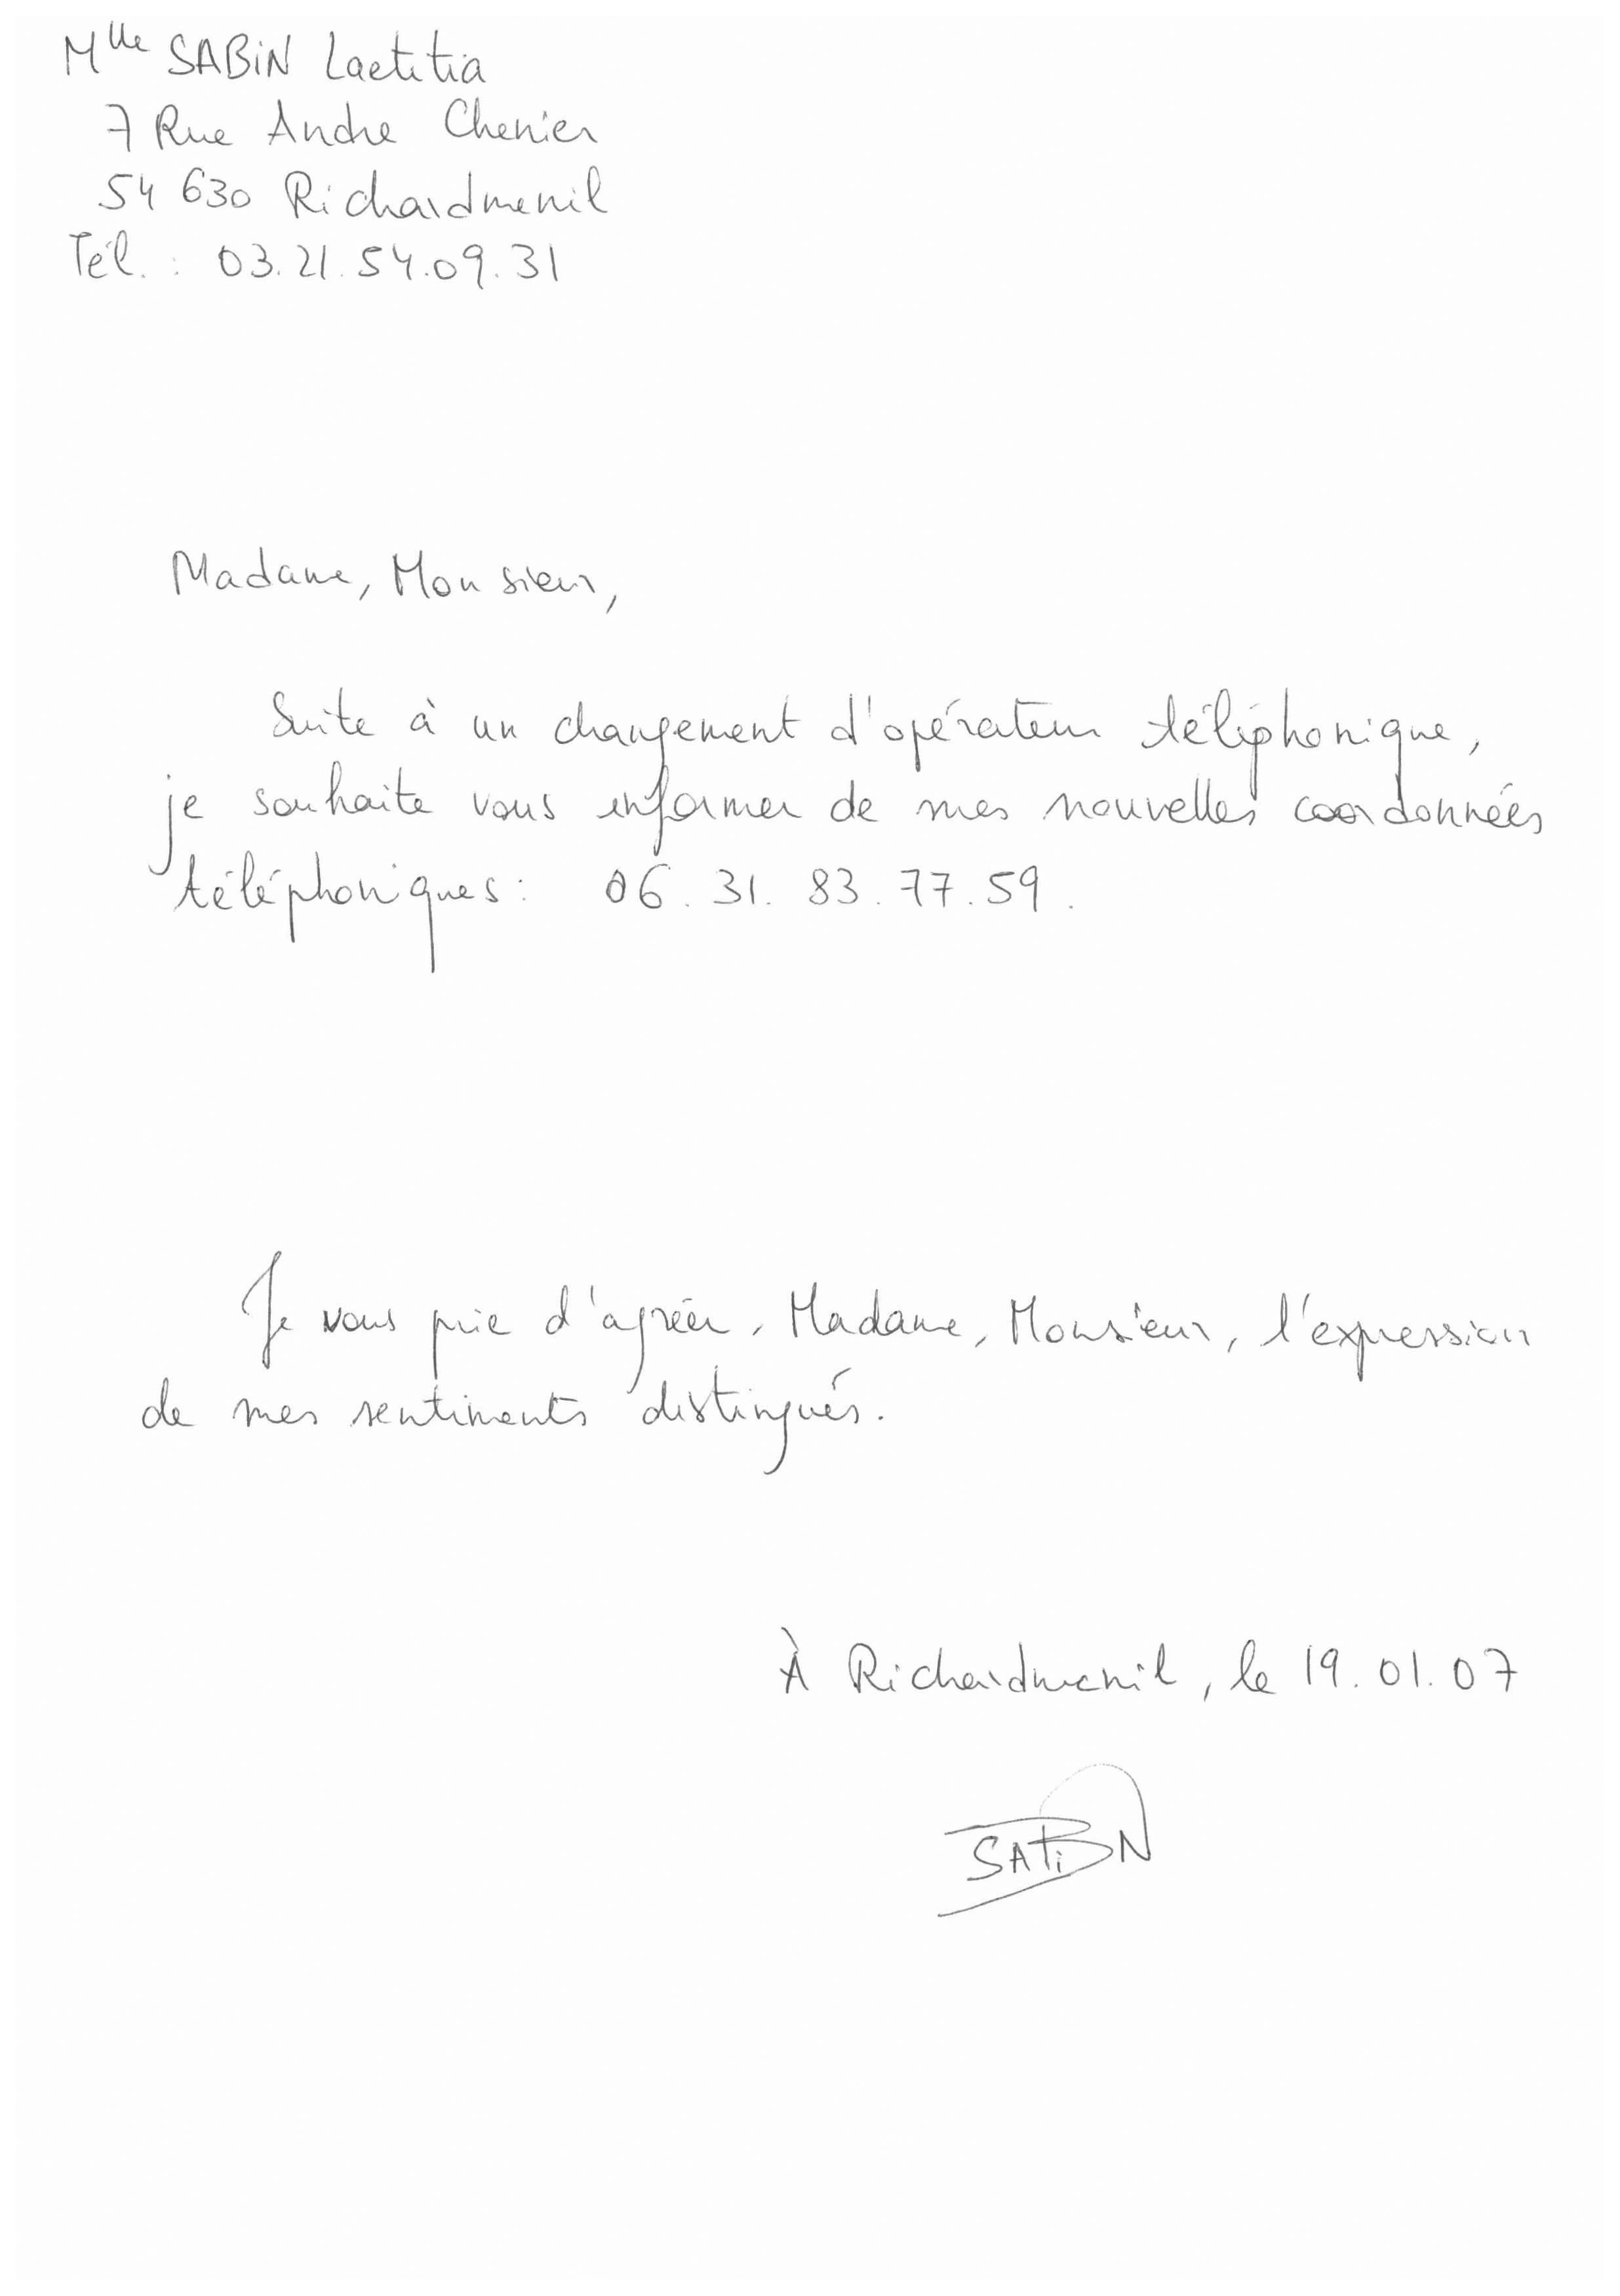 Mlle SABIN Laetitia
7 Rue Andre Chenier
54 630 Richardmenil
Tél. : 03.21.54.09.31
Madame, Monsieur,
Suite à un changement d'opérateur téléphonique,
je souhaite vous informer de mes nouvelles coordonnées
téléphoniques : 06.31.83.77.59.
Je vous prie d'agréer, Madame, Monsieur, l'expression
de mes sentiments distingués.
À Richardmenil, le 19.01.07
SABIN